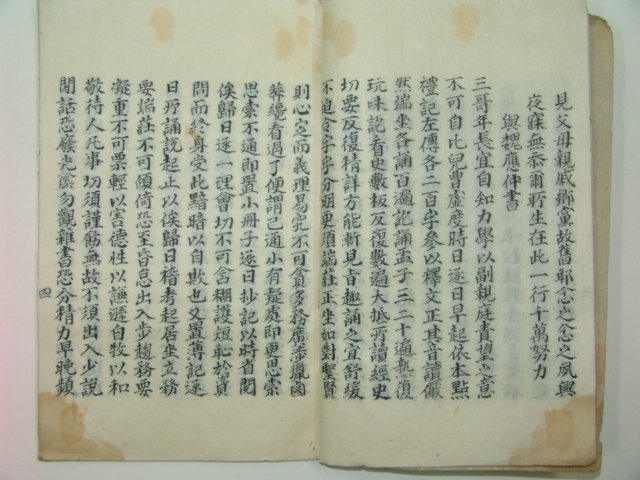 見父母親戚鄕黨故舊耶念之念之夙興
夜寐無忝爾所生在此一行千萬努力
與魏應仲書
三哥年長宜自知力學以副親庭責望之意
不可自比兒曹虛度時日逐日早起依本點
禮記左傳各二百字參以釋文正其音讀儼
然端坐各誦百遍記誦孟子三二十遍熟復
玩味訖看史數板反復數遍大抵所讀經史
切要反復精詳方能漸見旨趣誦之宜舒緩
不迫令字字分明更須端莊正坐如對聖賢
則心定而義理易究不可貪多務廣涉獵鹵
莽纔看過了便謂已通小有疑處即更思索
思索不通即置小冊子逐日抄記以時省閱
俟歸日逐一理會切不可含糊護短恥於資
問而終身受此黯暗以自欺也又置簿記逐
日所誦說起止以俟歸日稽考起居坐立務
要端莊不可傾倚恐至昏怠出入步趨務要
凝重不可票輕以害德性以謙遜自牧以和
敬待人凡事切須謹飭無故不須出入少說
閒話恐廢光陰勿觀雜書恐分精力早晚頻
四